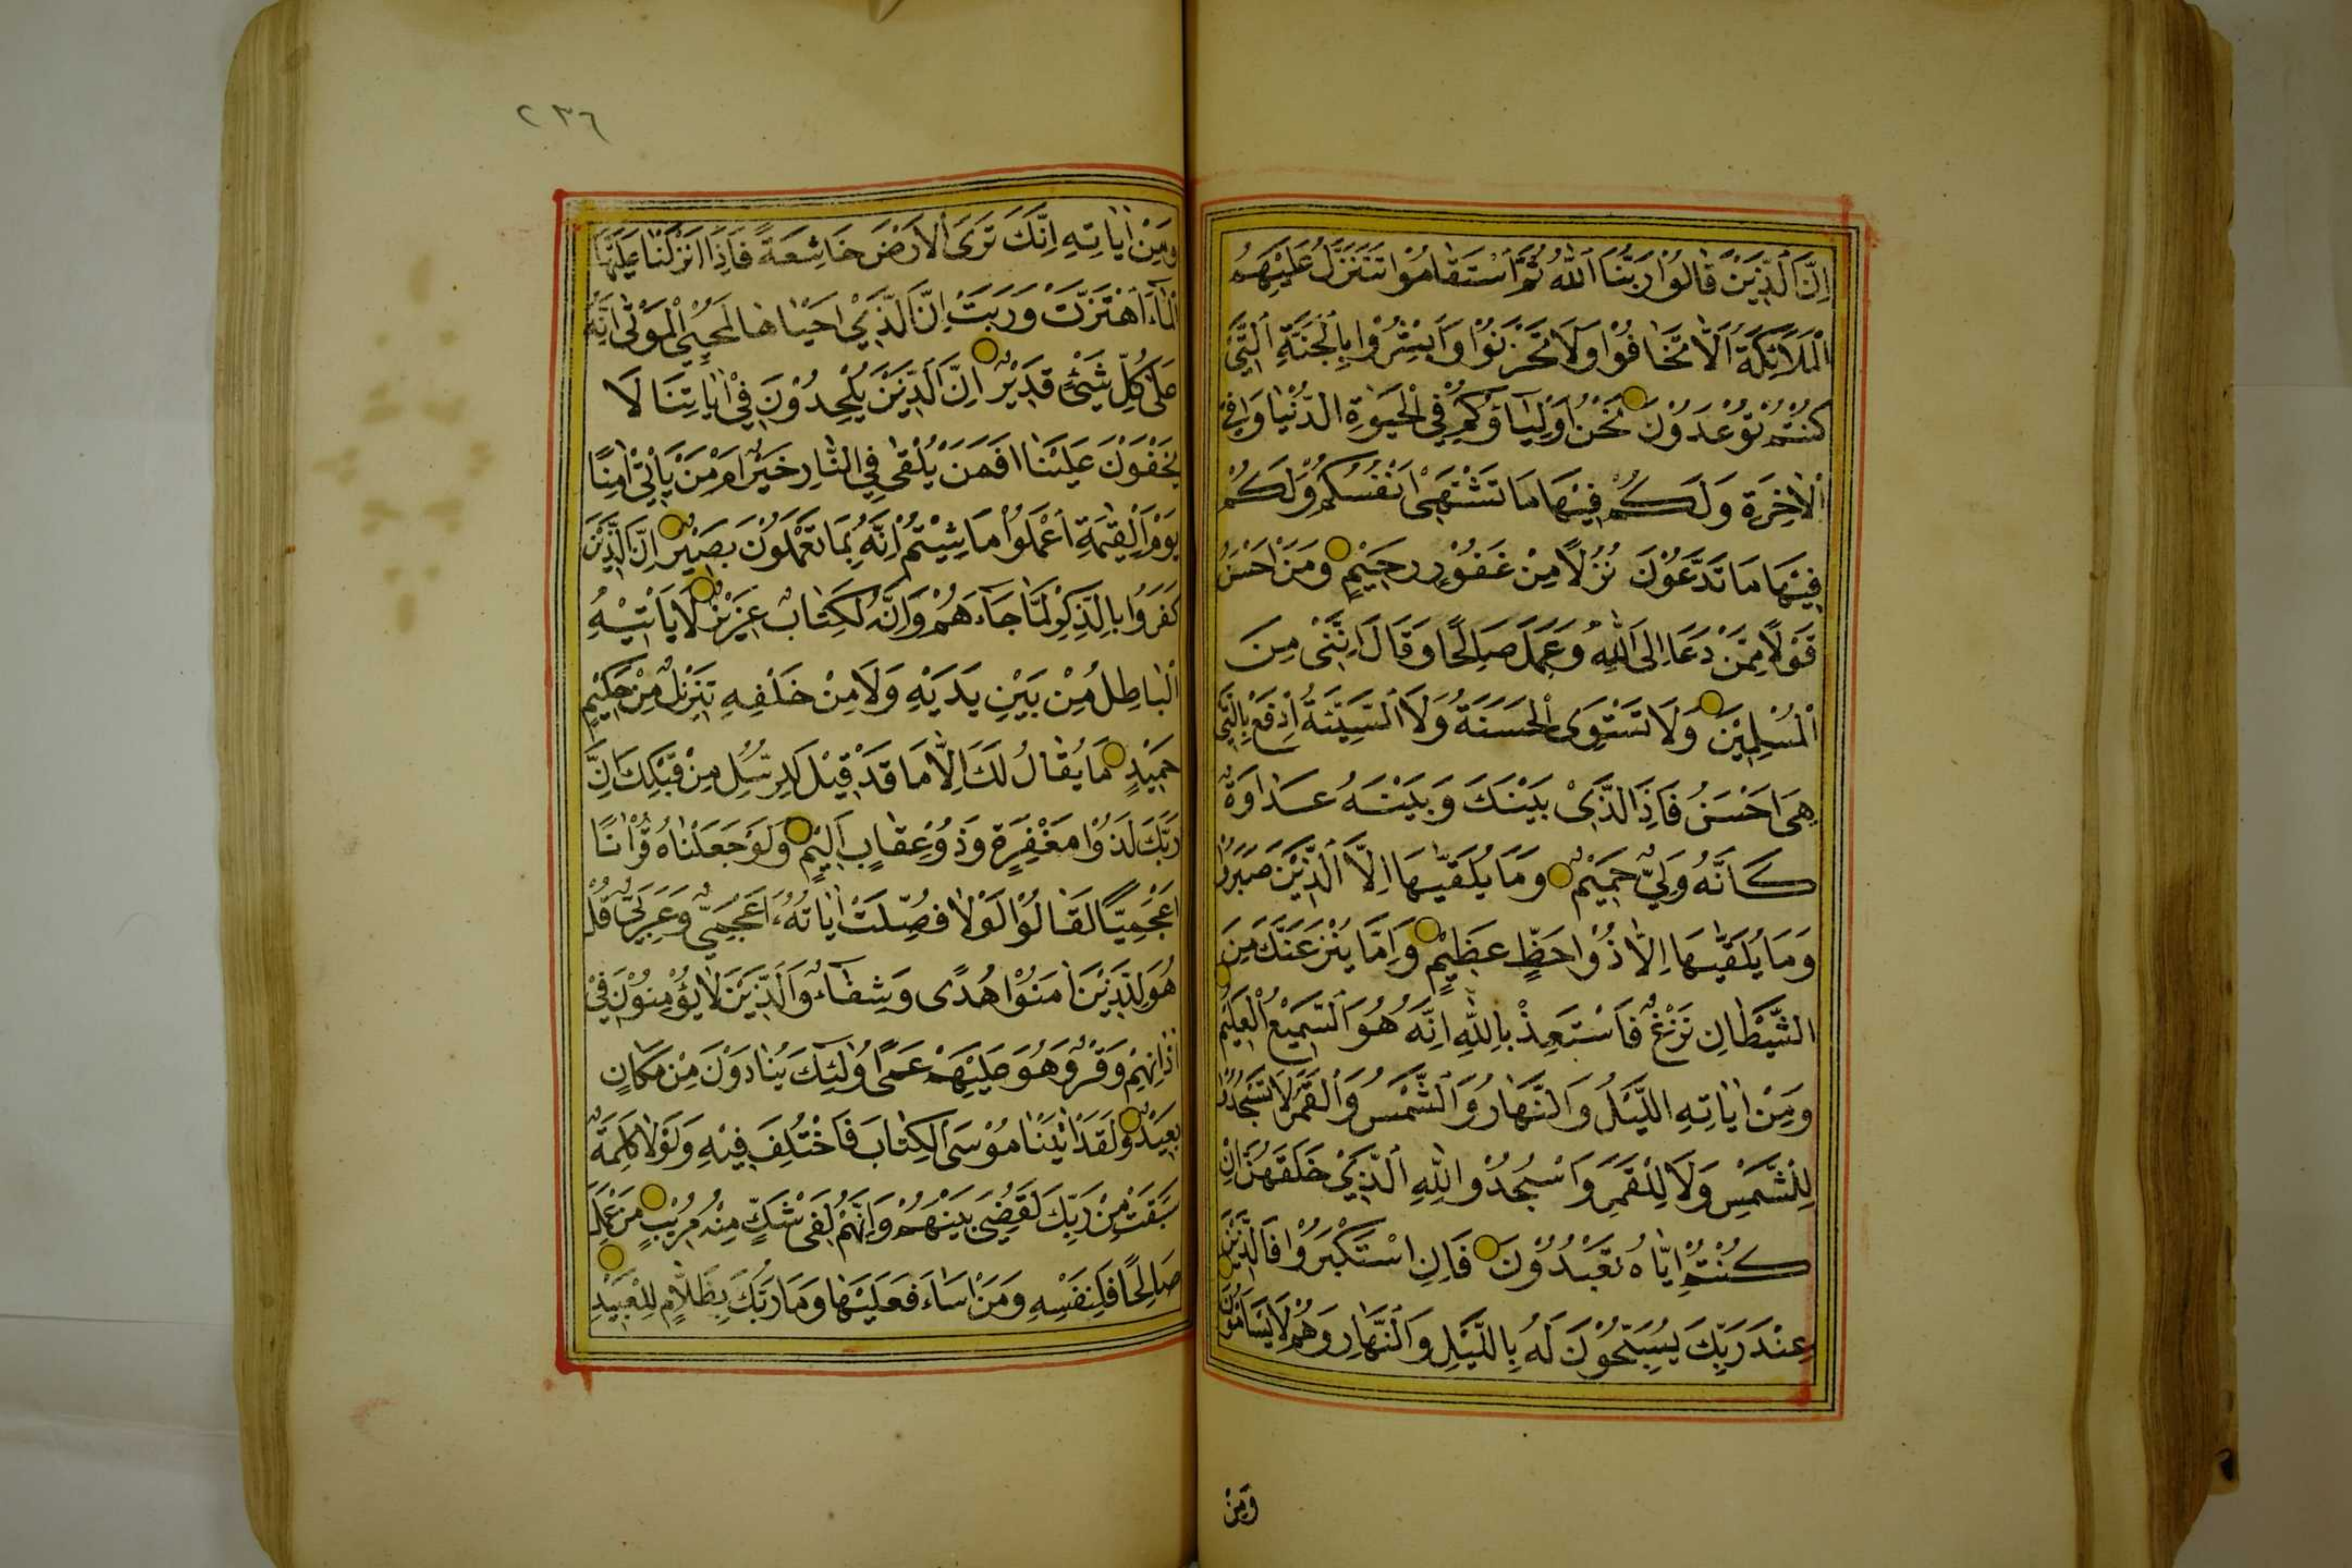 اِنَّ الَّذِيْنَ قَالُوْا رَبُّنَا اللّٰهُ ثُمَّ اسْتَقَامُوْا تَتَنَزَّلُ عَلَيْهِمُ
الْمَلَائِكَةُ اَلَّا تَخَافُوْا وَلَا تَحْزَنُوْا وَاَبْشِرُوْا بِالْجَنَّةِ الَّتِيْ
كُنْتُمْ تُوْعَدُوْنَ نَحْنُ اَوْلِيَاؤُكُمْ فِي الْحَيٰوةِ الدُّنْيَا وَفِي
الْاٰخِرَةِ وَلَكُمْ فِيْهَا مَا تَشْتَهِيْ اَنْفُسُكُمْ وَلَكُمْ
فِيْهَا مَا تَدَّعُوْنَ نُزُلًا مِنْ غَفُوْرٍ رَحِيْمٍ وَمَنْ اَحْسَنُ
قَوْلًا مِمَّنْ دَعَا اِلَى اللّٰهِ وَعَمِلَ صَالِحًا وَقَالَ اِنَّنِيْ مِنَ
الْمُسْلِمِيْنَ وَلَا تَسْتَوِى الْحَسَنَةُ وَلَا السَّيِّئَةُ اِدْفَعْ بِالَّتِيْ
هِيَ اَحْسَنُ فَاِذَا الَّذِيْ بَيْنَكَ وَبَيْنَهُ عَدَاوَةٌ
كَاَنَّهُ وَلِيٌّ حَمِيْمٌ وَمَا يُلَقّٰيهَا اِلَّا الَّذِيْنَ صَبَرُوْا
وَمَا يُلَقّٰيهَا اِلَّا ذُوْا حَظٍّ عَظِيْمٍ وَاِمَّا يَنْزَغَنَّكَ مِنَ
الشَّيْطَانِ نَزْغٌ فَاسْتَعِذْ بِاللّٰهِ اِنَّهُ هُوَ السَّمِيْعُ الْعَلِيْمُ
وَمِنْ اٰيَاتِهِ اللَّيْلُ وَالنَّهَارُ وَالشَّمْسُ وَالْقَمَرُ لَا تَسْجُدُوْا
لِلشَّمْسِ وَلَا لِلْقَمَرِ وَاسْجُدُوْا لِلّٰهِ الَّذِيْ خَلَقَهُنَّ اِنْ
كُنْتُمْ اِيَّاهُ تَعْبُدُوْنَ فَاِنِ اسْتَكْبَرُوْا فَالَّذِيْنَ
عِنْدَ رَبِّكَ يُسَبِّحُوْنَ لَهُ بِاللَّيْلِ وَالنَّهَارِ وَهُمْ لَا يَسْاَمُوْنَ
وَمِنْ
٢٣٦
وَمِنْ اٰيَاتِهِ اِنَّكَ تَرَى الْاَرْضَ خَاشِعَةً فَاِذَا اَنْزَلْنَا عَلَيْهَا
الْمَاءَ اهْتَزَّتْ وَرَبَتْ اِنَّ الَّذِيْ اَحْيَاهَا لَمُحْيِي الْمَوْتٰى اِنَّهُ
عَلٰى كُلِّ شَيْئٍ قَدِيْرٌ اِنَّ الَّذِيْنَ يُلْحِدُوْنَ فِيْ اٰيَاتِنَا لَا
يَخْفَوْنَ عَلَيْنَا اَفَمَنْ يُلْقٰى فِي النَّارِ خَيْرٌ اَمْ مَنْ يَأْتِيْ اٰمِنًا
يَوْمَ الْقِيٰمَةِ اعْمَلُوْا مَا شِئْتُمْ اِنَّهُ بِمَا تَعْمَلُوْنَ بَصِيْرٌ اِنَّ الَّذِيْنَ
كَفَرُوْا بِالذِّكْرِ لَمَّا جَاءَهُمْ وَاِنَّهُ لَكِتَابٌ عَزِيْزٌ لَا يَأْتِيْهِ
الْبَاطِلُ مِنْ بَيْنِ يَدَيْهِ وَلَا مِنْ خَلْفِهِ تَنْزِيْلٌ مِنْ حَكِيْمٍ
حَمِيْدٍ مَا يُقَالُ لَكَ اِلَّا مَا قَدْ قِيْلَ لِلرُّسُلِ مِنْ قَبْلِكَ اِنَّ
رَبَّكَ لَذُوْا مَغْفِرَةٍ وَذُوْ عِقَابٍ اَلِيْمٍ وَلَوْ جَعَلْنَاهُ قُرْاٰنًا
اَعْجَمِيًّا لَقَالُوْا لَوْلَا فُصِّلَتْ اٰيَاتُهُ ءَاَعْجَمِيٌّ وَعَرَبِيٌّ قُلْ
هُوَ لِلَّذِيْنَ اٰمَنُوْا هُدًى وَشِفَاءٌ وَالَّذِيْنَ لَا يُؤْمِنُوْنَ فِيْ
اٰذَانِهِمْ وَقْرٌ وَهُوَ عَلَيْهِمْ عَمًى اُولٰئِكَ يُنَادَوْنَ مِنْ مَكَانٍ
بَعِيْدٍ وَلَقَدْ اٰتَيْنَا مُوْسَى الْكِتَابَ فَاخْتُلِفَ فِيْهِ وَلَوْلَا كَلِمَةٌ
سَبَقَتْ مِنْ رَبِّكَ لَقُضِيَ بَيْنَهُمْ وَاِنَّهُمْ لَفِيْ شَكٍّ مِنْهُ مُرِيْبٍ مَنْ عَمِلَ
صَالِحًا فَلِنَفْسِهِ وَمَنْ اَسَاءَ فَعَلَيْهَا وَمَا رَبُّكَ بِظَلَّامٍ لِلْعَبِيْدِ